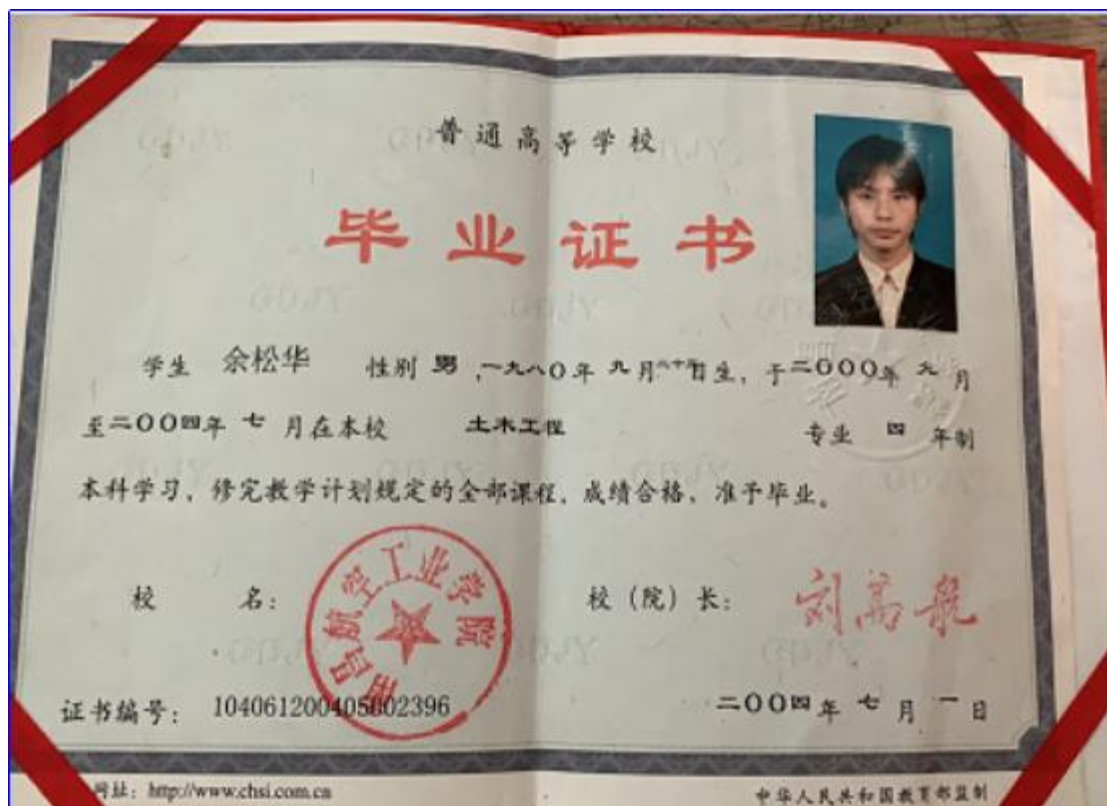 普通高等学校
毕业证书
学生 余松华 性别 男，一九八〇年九月 日生，于二〇〇〇年九月
至二〇〇四年七月在本校 土木工程 专业 四 年制
本科学习，修完教学计划规定的全部课程，成绩合格，准予毕业。
校 名： 南昌航空工业学院 校（院）长： 刘高航
证书编号： 104061200405002396 二〇〇四年七月一日
网址：http://www.chsi.com.cn 中华人民共和国教育部监制